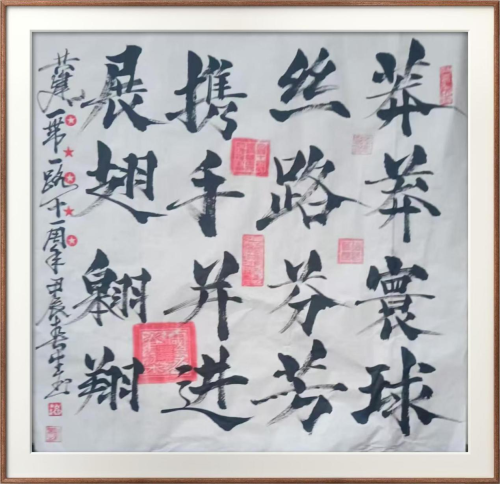 莽莽寰球
丝路芬芳
携手并进
展翅翱翔
共建一带一路十一周年甲辰春生书